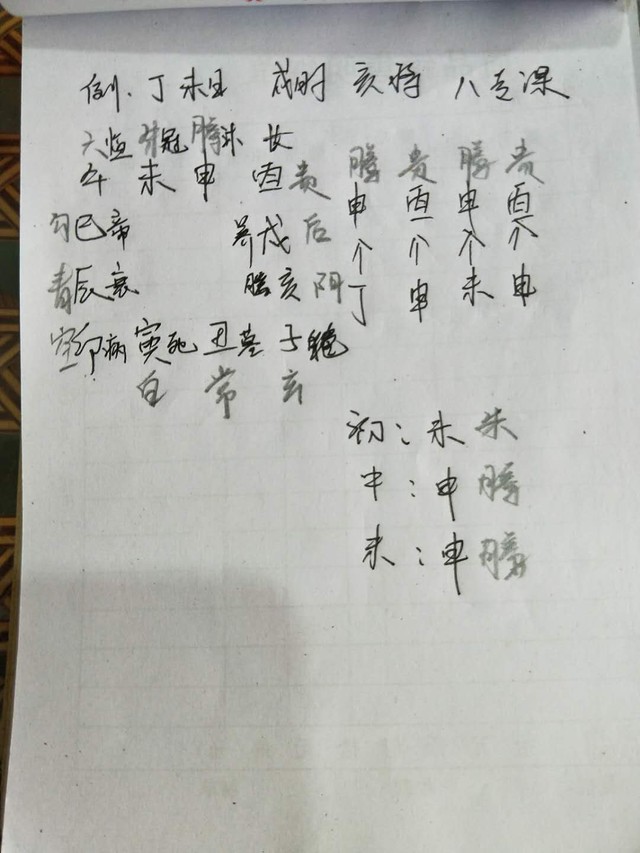 例.丁未日 戌时 亥将 八专课
六 朱冠 螣沐
午 未 申 酉贵 螣 贵 螣 贵
申 酉 申 酉
勾巳帝 养戌后 个 个 个 个
青辰衰 胎亥阴 丁 申 未 申
空卯病寅死丑墓子绝
白 常 玄
初:未朱
中:申螣
末:申螣